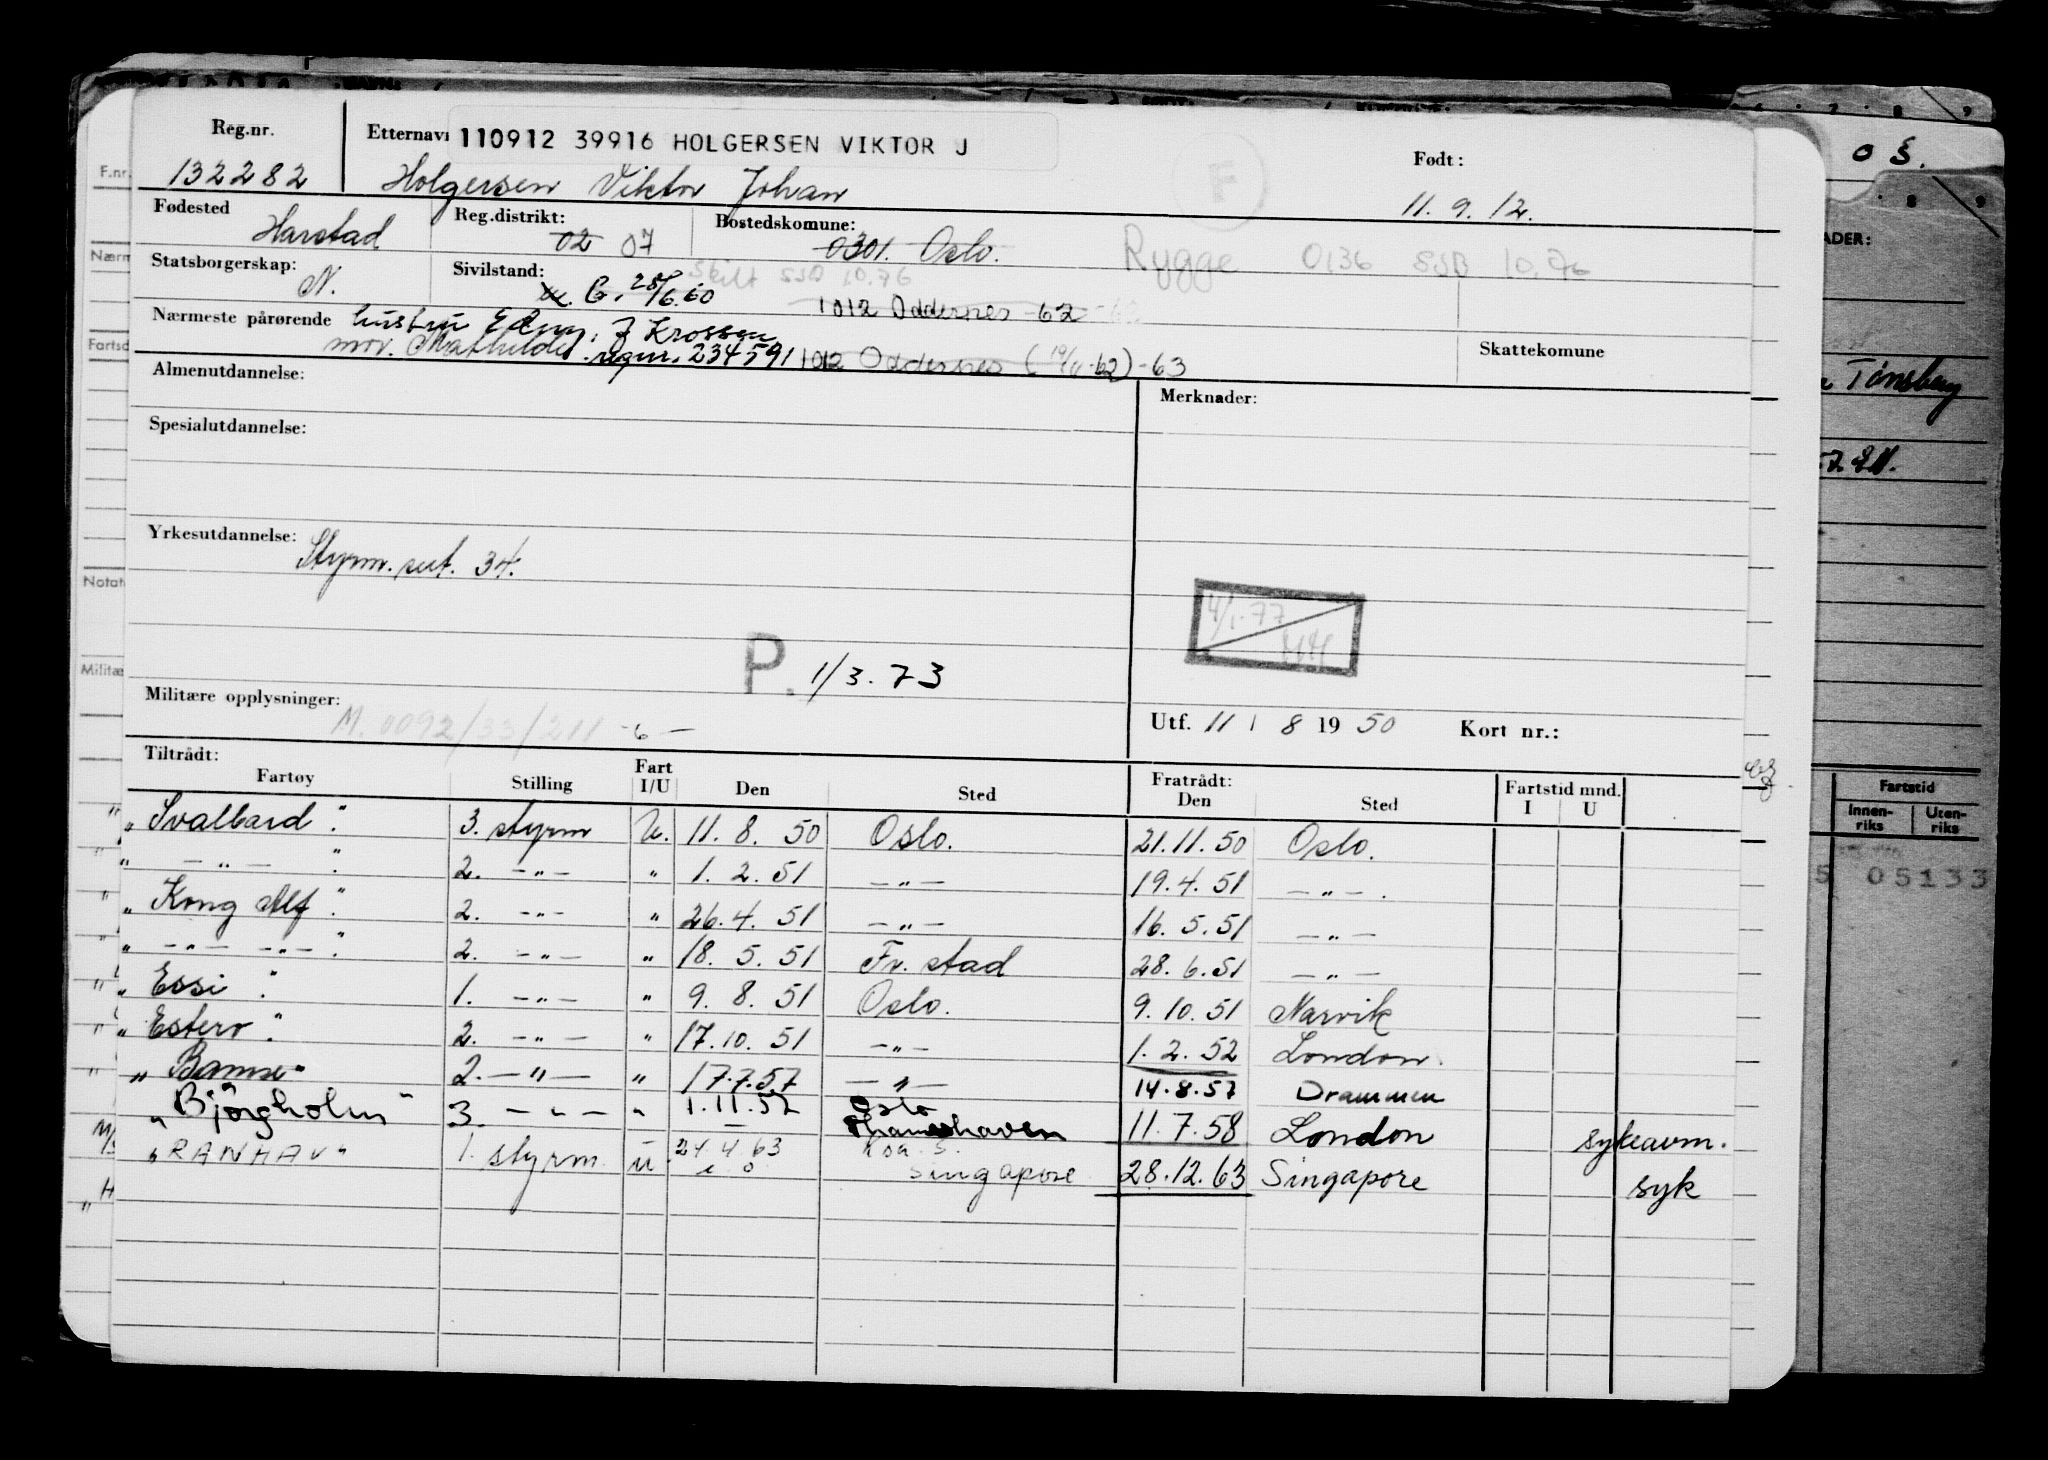 Reg.nr.
132282
Etternavn
110912 39916 HOLGERSEN VIKTOR J
Holgersen Viktor Johan
F
Født:
11. 9. 12.
Fødested
Harstad
Reg.distrikt:
02 07
Bostedskomune:
0301. Oslo.
Rygge 0136 SSB 10.76
Statsborgerskap:
N.
Sivilstand:
G. 28/6.60
Skilt SSB 10.76
1012 Oddernes -62
Nærmeste pårørende
hustru Edny. J Krossen
mor. Mathilde. regnr. 234591
1012 Oddernes (19/11-62) -63
Skattekomune
Almenutdannelse:
Merknader:
Spesialutdannelse:
Yrkesutdannelse:
Styrm. sert. 34.
4/1-77
P. 1/3. 73
Militære opplysninger:
M. 0092/33/211 -6-
Utf. 11 / 8 19 50 Kort nr.:
Tiltrådt:
Fartøy Stilling Fart I/U Den Sted
Fratrådt:
Den Sted
Fartstid mnd.
I U
" Svalbard " 3. styrm U. 11. 8. 50 Oslo. 21. 11. 50 Oslo.
" -"- " 2. -"- " 1. 2. 51 -"- 19. 4. 51 -"-.
" Kong Alf " 2. -"- " 26. 4. 51 -"- 16. 5. 51 -"-
" -"- -"- " 2. -"- " 18. 5. 51 Fr. stad 28. 6. 51 -"-
" Essi " 1. -"- " 9. 8. 51 Oslo. 9. 10. 51 Narvik
" Estero " 2. -"- " 17. 10. 51 -"- 1. 2. 52 London.
" Bamse " 2. -"- " 17.7.57 -"- 14.8.57 Drammen
" Bjørgholm " 3. -"- " 1.11.57 Oslo
Thameshaven 11. 7. 58 London sykeavm.
" RANHAV " 1. styrm. U 24 4 63
Singapore 28.12.63 Singapore syk
F.nr.
Nærm
Fartsd
Notat
Militæ
o s.
ADER:
Tønsberg
Fartstid
Innen-
riks
Uten-
riks
5 05133